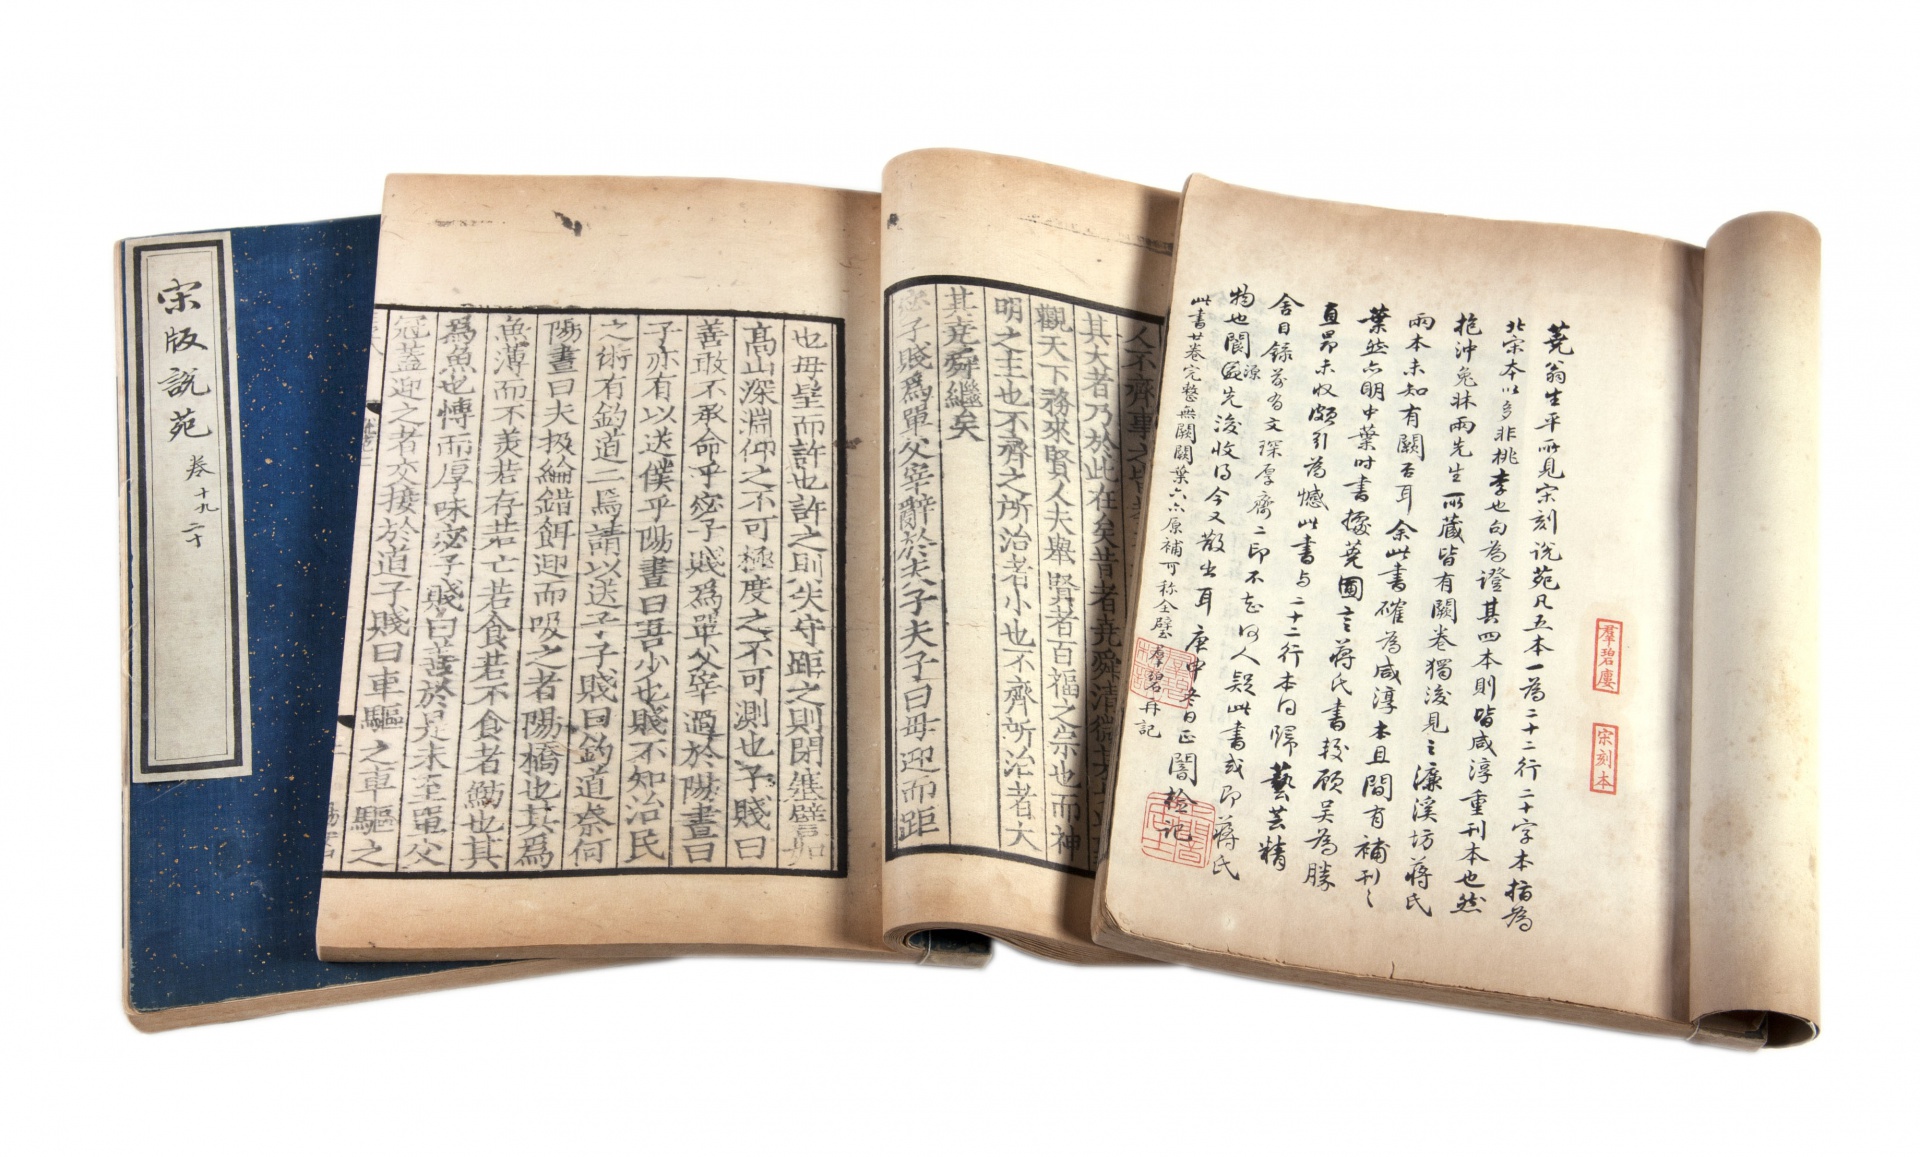 宋版說苑 卷十九 二十
其大者乃於此在矣昔者堯舜清微其身
觀天下務來賢人夫舉賢者百福之宗也而神
明之主也不齊之所治者小也不齊所治者大
其堯舜繼矣
宓子賤爲單父宰辭於夫子夫子曰毋迎而距
也毋望而許也許之則失守距之則閉塞譬如
高山深淵仰之不可極度之不可測也子賤曰
善敢不承命乎宓子賤爲單父宰過於陽晝曰
子亦有以送僕乎陽晝曰吾少也賤不知治民
之術有釣道二焉請以送子子賤曰釣道柰何
陽晝曰夫扱綸錯餌迎而吸之者陽橋也其爲
魚薄而不美若存若亡若食若不食者魴也其
爲魚也博而厚味宓子賤曰善於是未至單父
冠蓋迎之者交接於道子賤曰車驅之車驅之
羣碧廔
宋刻本
蕘翁生平所見宋刻說苑凡五本一為二十二行二十字本指為
北宋本以多非桃李也句為證其四本則皆咸淳重刊本也然
抱沖兔牀兩先生所藏皆有闕卷獨後見之濂溪坊蔣氏
兩本未知有闕否耳余此書確為咸淳本且間有補刊之
葉然亦明中葉時書據蕘圃言蔣氏書校顧吳為勝
直昂未收頗引為憾此書与二十二行本同歸藝芸精
舍目錄前有文琛厚齋二印不知何人疑此書或即蔣氏
物也閬源先後收得今又散出耳 庚申冬日正闇檢記
此書廿卷完整無闕闕葉六亦原補可称全璧羣碧再記